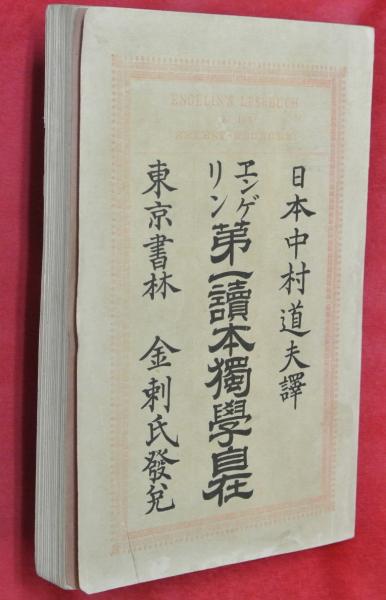 ENGELIN'S LESEBUCH
日本中村道夫譯
エンゲリン第一讀本獨學自在
東京書林 金刺氏發兌